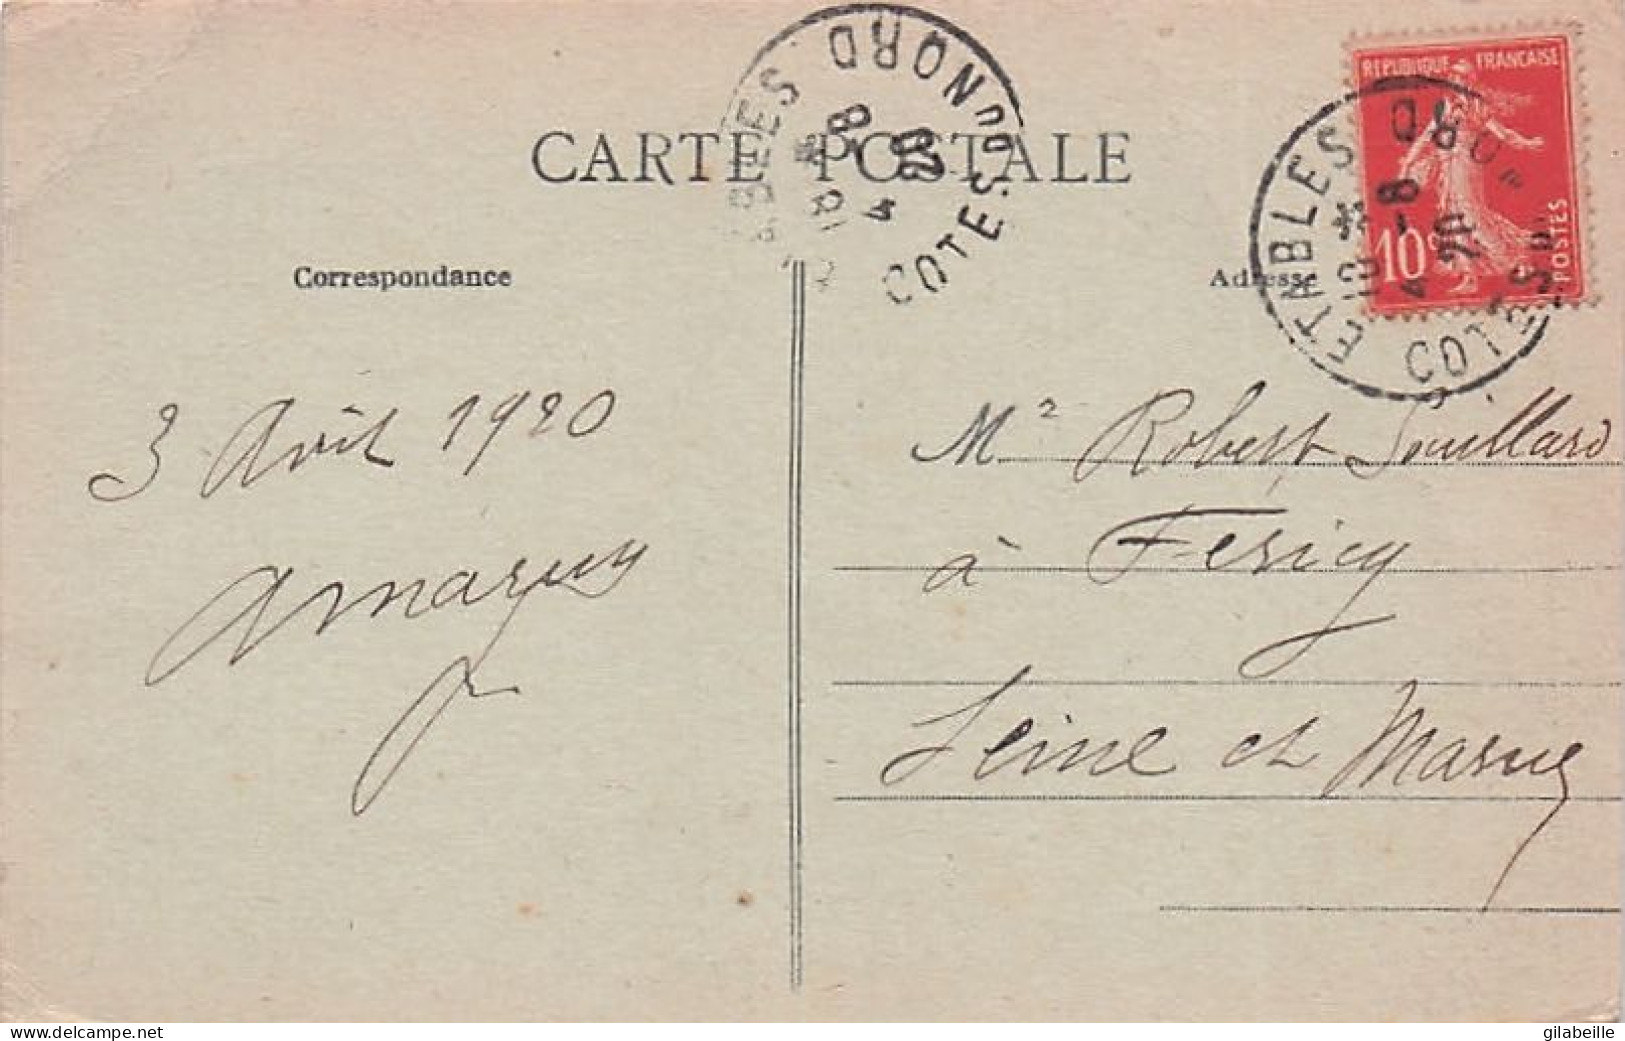 CARTE POSTALE
Correspondance
Adresse
REPUBLIQUE FRANCAISE
10c
POSTES
ETABLES COTES DU NORD
8-4 20
COTES DU NORD
8-4 20
3 Avril 1920
Mr Robert Souillard
à Féricy
Seine et Marne
www.delcampe.net
gilabeille